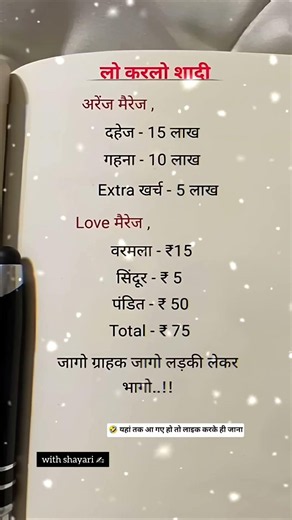 लो करलो शादी
अरेंज मैरेज ,
दहेज - 15 लाख
गहना - 10 लाख
Extra खर्च - 5 लाख
Love मैरेज ,
वरमला - ₹15
सिंदूर - ₹ 5
पंडित - ₹ 50
Total - ₹ 75
जागो ग्राहक जागो लड़की लेकर
भागो..!!
🤣 यहां तक आ गए हो तो लाइक करके ही जाना
with shayari ✍️